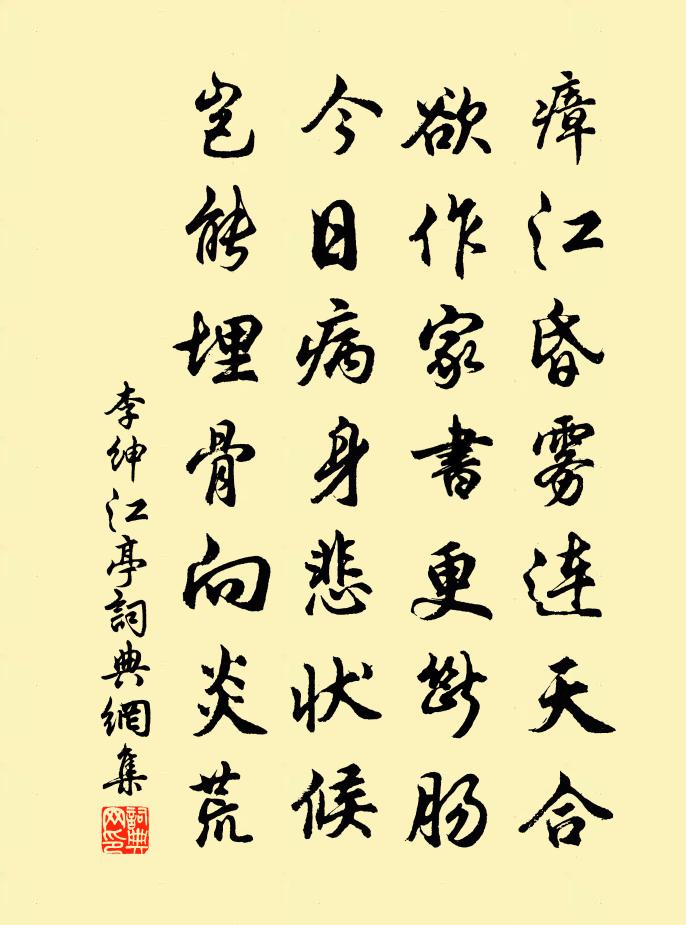 瘴江昏雾連天合
欲作家書更断肠
今日病身悲状候
岂能埋骨向炎荒
李绅江亭詞典網集
詞典网印